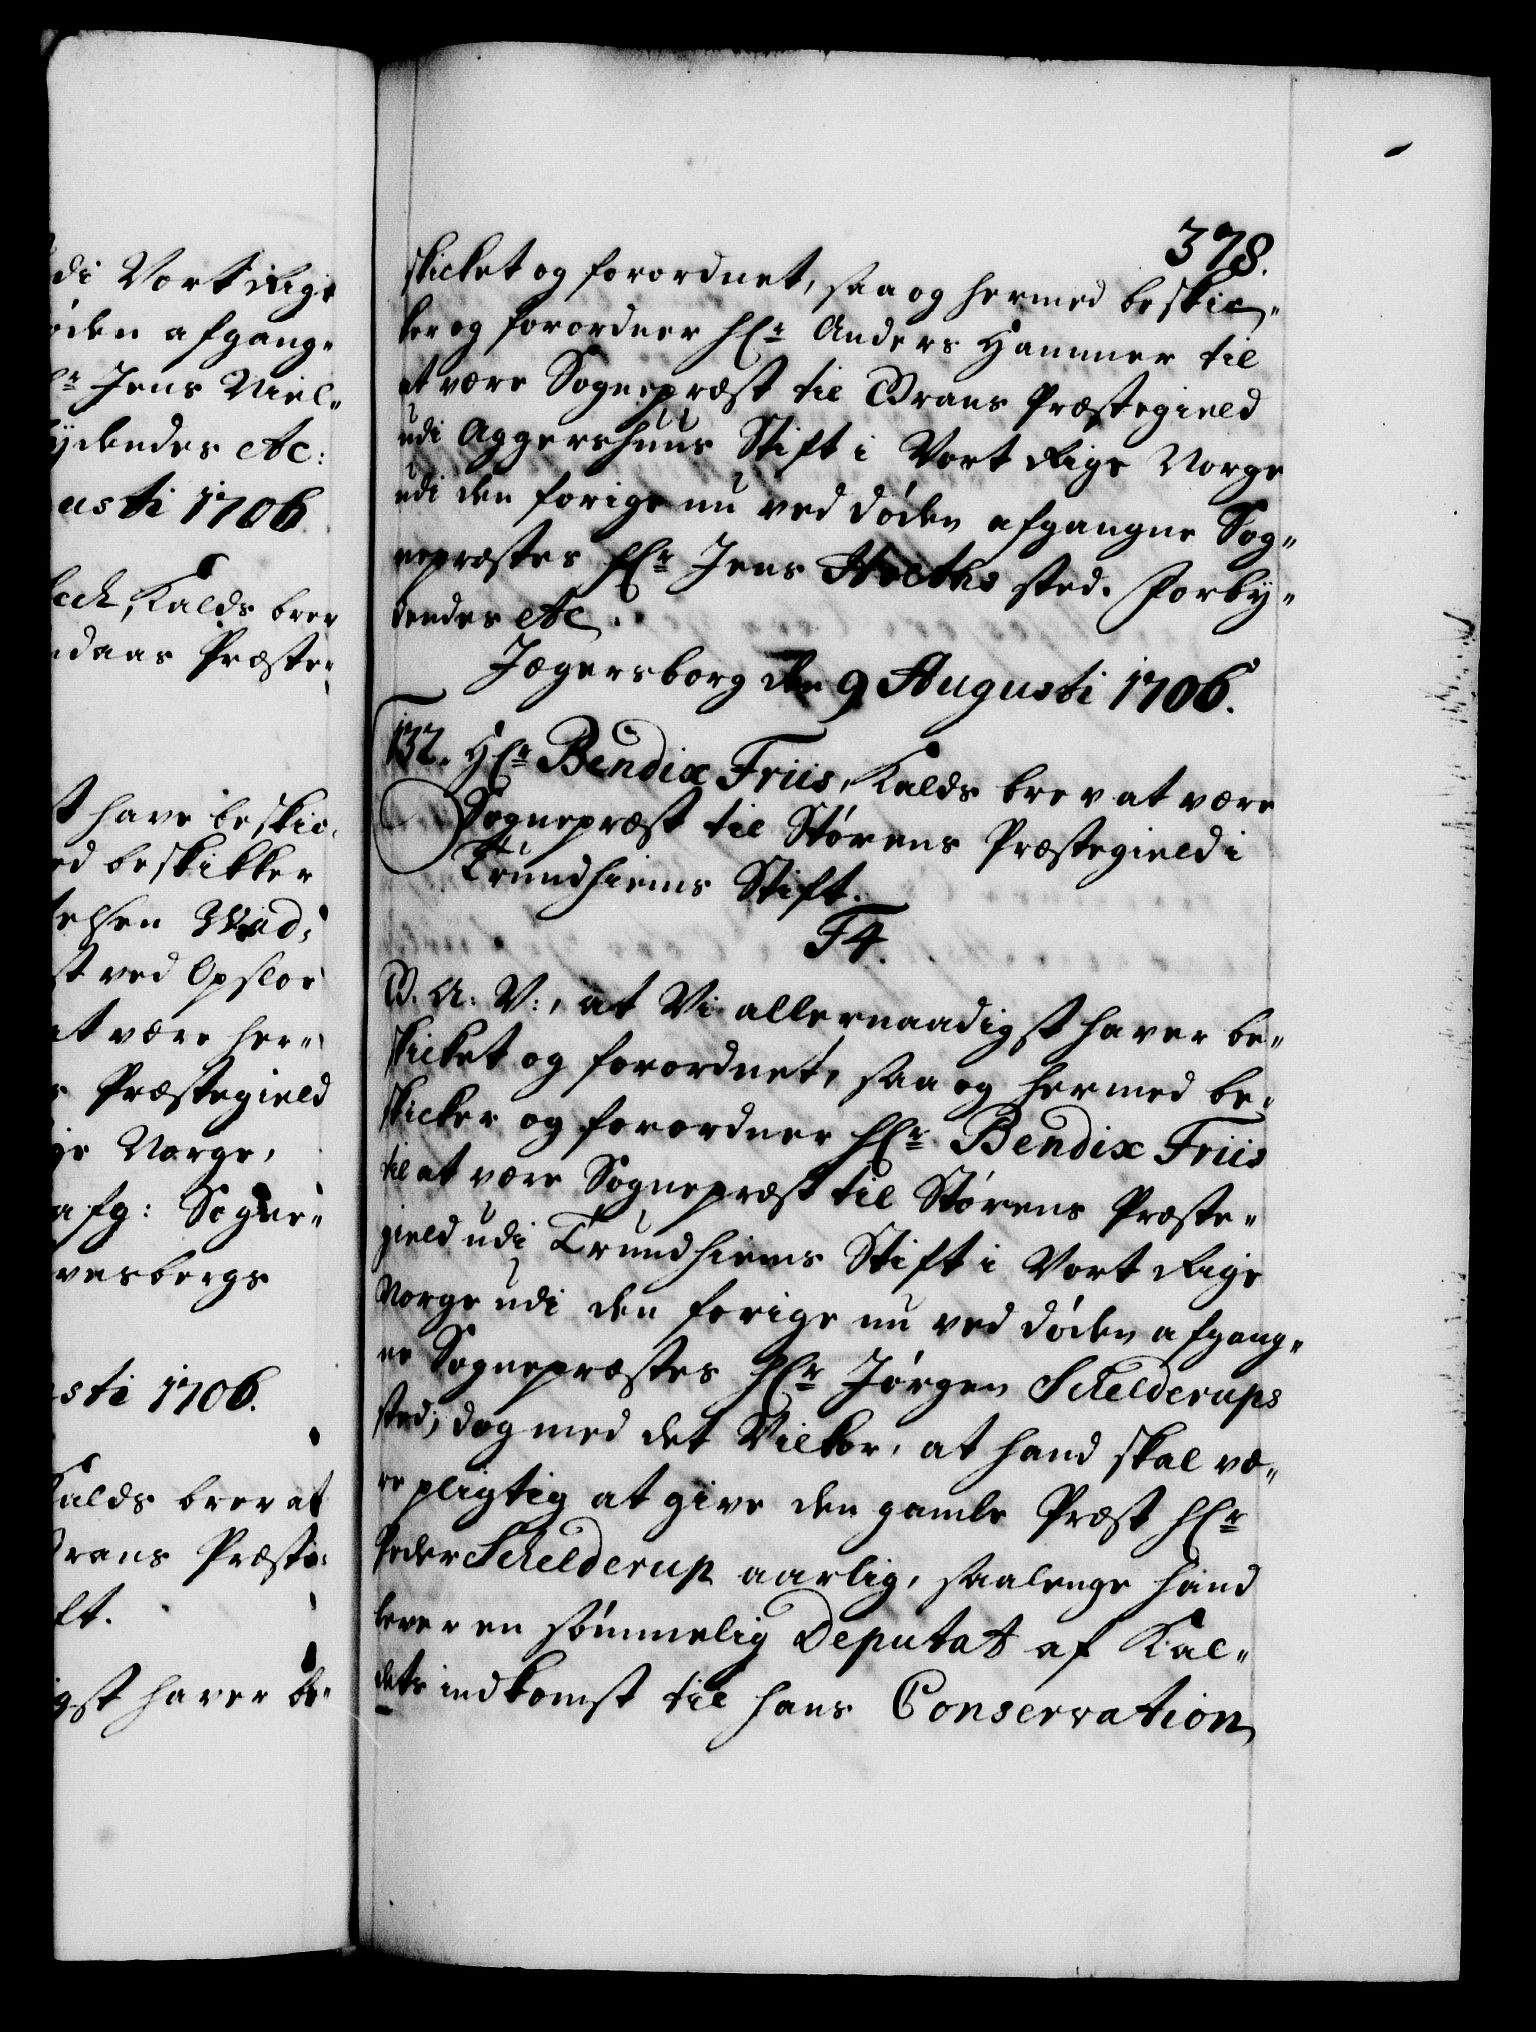 di Vort Rige
øden afgang-
Hr Jens Niel-
ydendes etc:
usti 1706
, Kalds brev
daas Præste-
st have beskic-
ed beskikker
telsen Wad-
st ved Opsloe
at være her-
s Præstegield
ge Norge,
afg: Sogne-
vesbergs
sti 1706.
Kalds brev at
Brans Præste-
ft.
gst haver be-
378.
skicket og forordnet, saa og hermed beskic-
ker og forordner Hr Anders Hammer til
at være Sognepræst til Brans Præstegield
udi Aggershuus Stift i Vort Rige Norge
udi den forige nu ved døden afgangne Sog-
nepræstes Hr Jens Holths sted. Forby-
dendes etc.
Jægersborg den 9 Augusti 1706.
132. Hr Bendix Friis, Kalds brev at være
Sognepræst til Størens Præstegield i
Trundhiems Stift.
F4.
G. A. V:, at Vi allernaadigst haver be-
skicket og forordnet, saa og hermed be-
skicker og forordner Hr Bendix Friis
til at være Sognepræst til Størens Præste-
gield udi Trundhiems Stift i Vort Rige
Norge udi den forige nu ved døden afgang-
ne Sognepræstes Hr Jørgen Schelderups
sted; dog med det Vilkor, at hand skal væ-
re pligtig at give den gamle Præst Hr
Peder Schelderup aarlig, saalenge hand
lever en sømmelig Deputat af Kal-
dets indkomst til hans Conservation